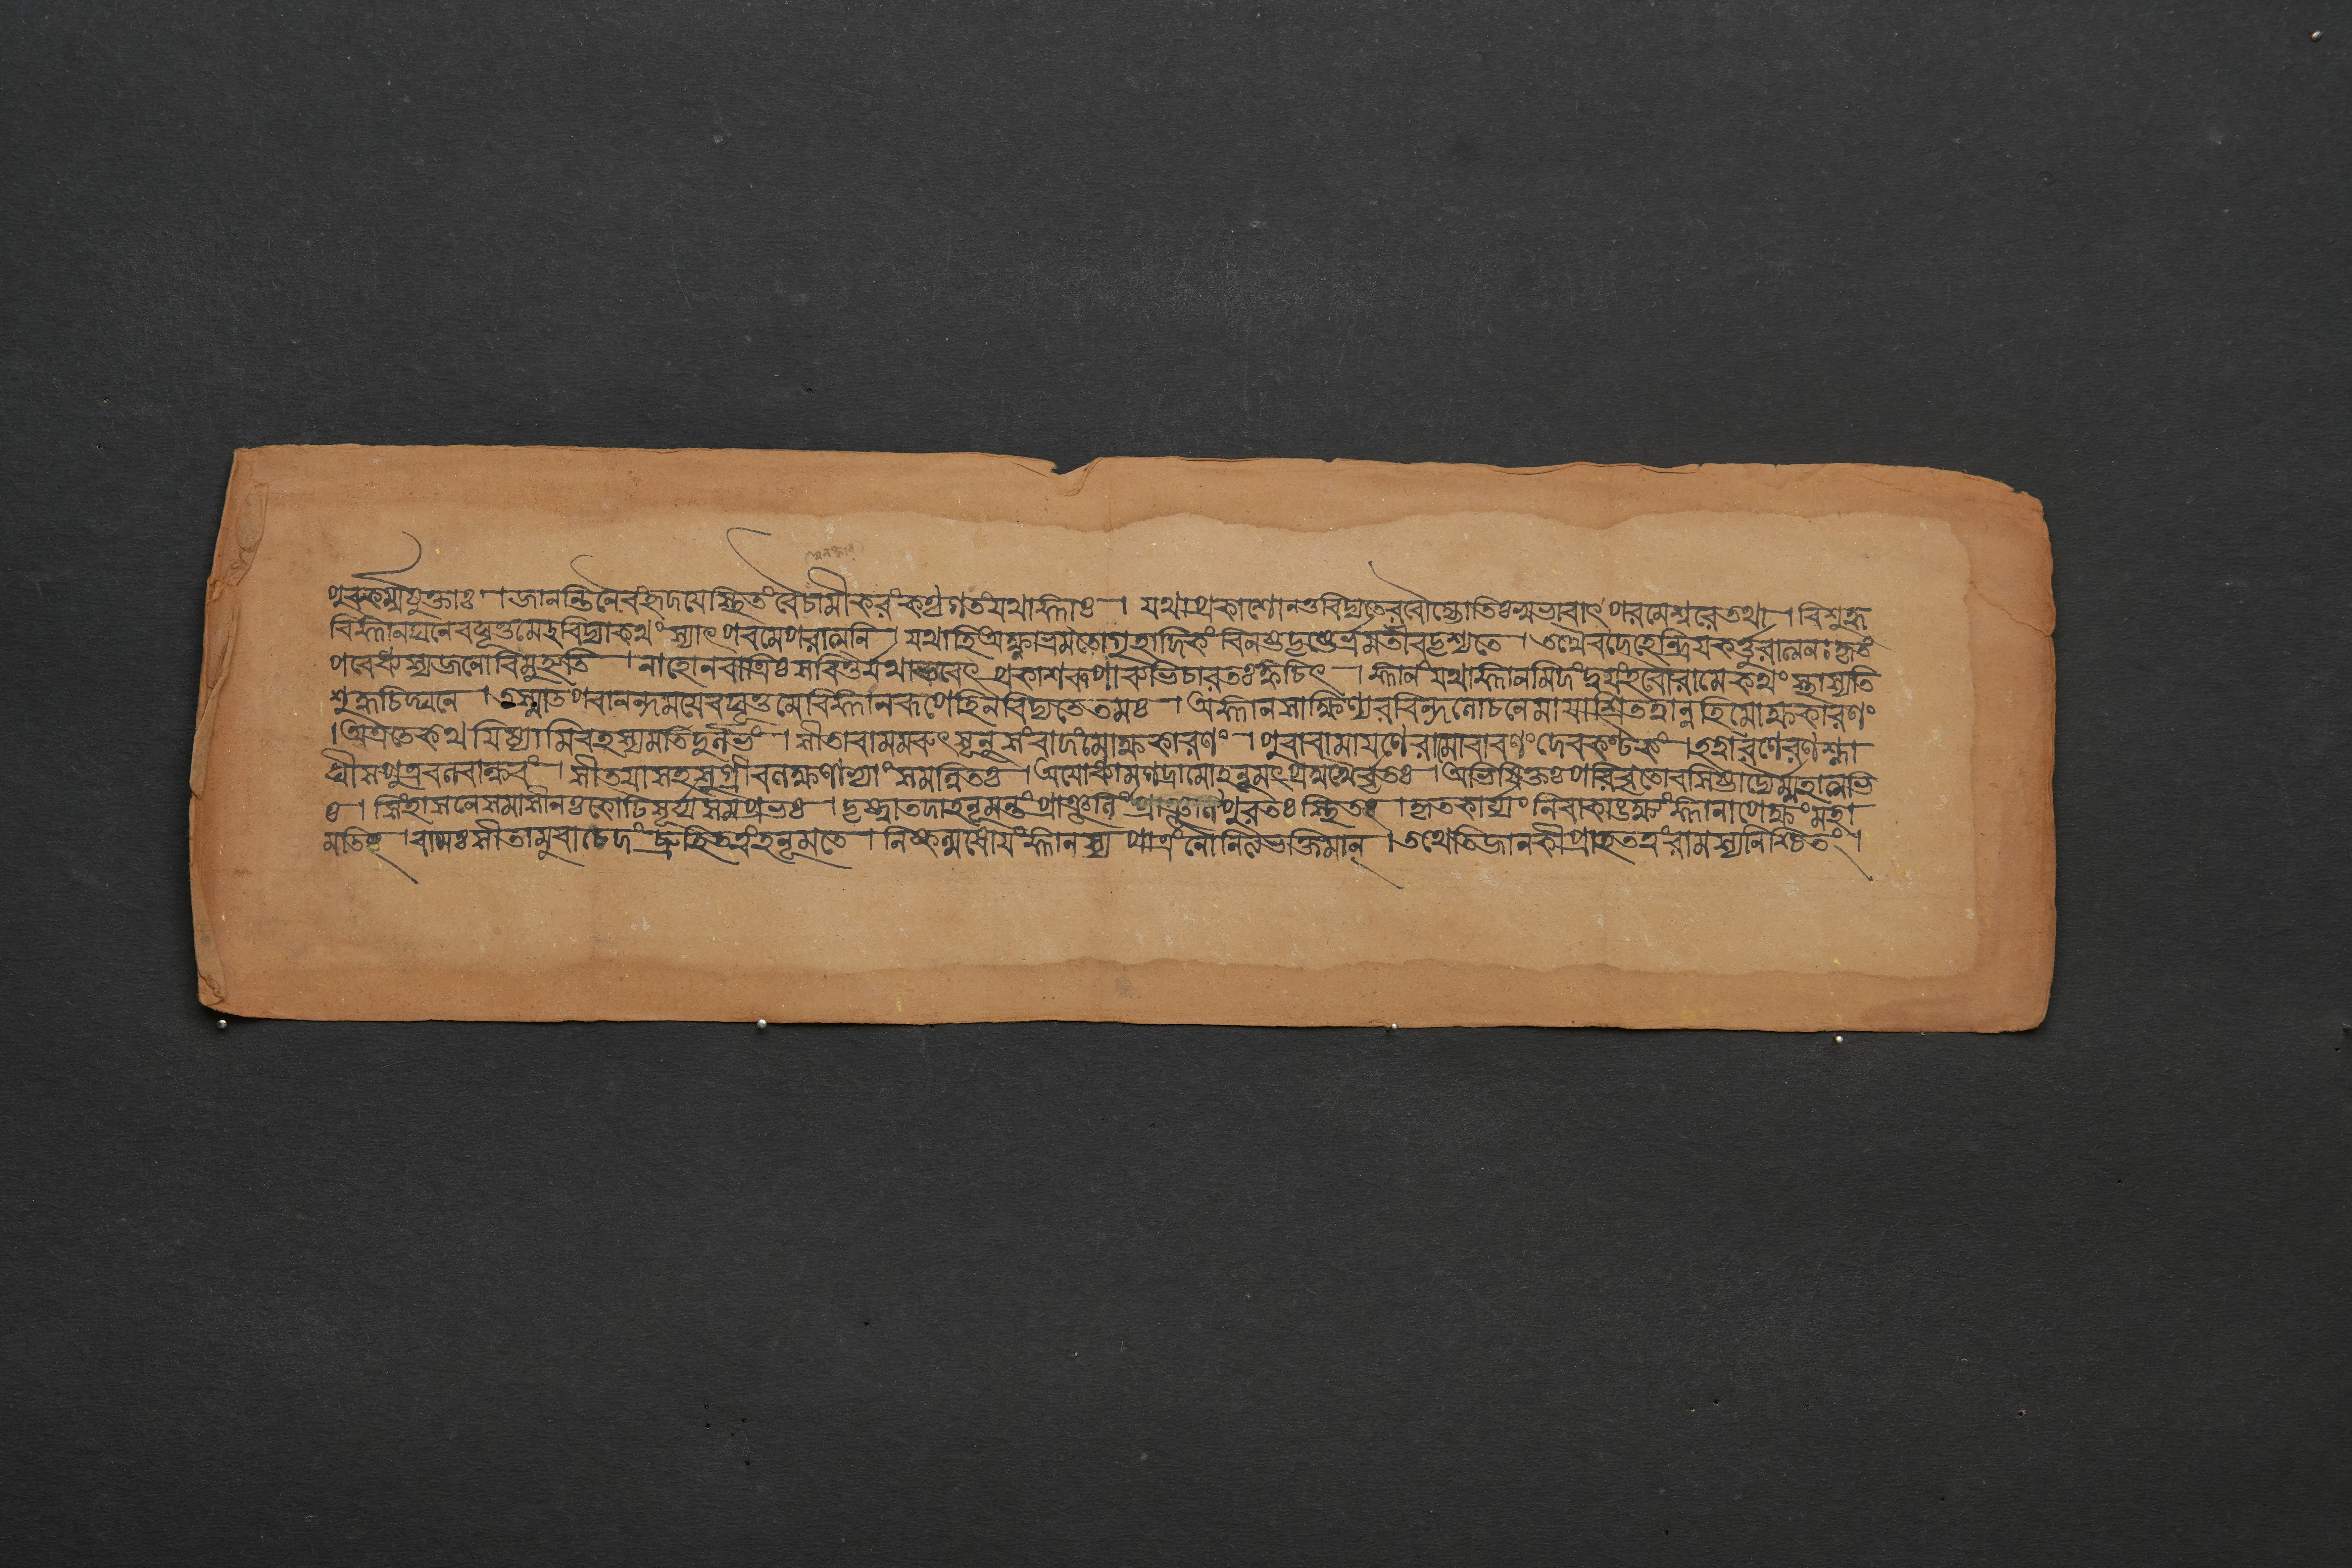 পুরুকর্ম্মযুক্তাঃ । জানন্তিনৈবংহৃদয়েস্থিতংবৈচামীকরংকণ্ঠগতংযথাজ্ঞাঃ । যথাপ্রকাশোনতুবিদ্যতেৰৱৌজ্যোতিঃস্বভাৱাৎ পৰমেশ্বৰেতথা । বিশুদ্ধ
বিজ্ঞানঘনেৰঘূত্তমেহবিদ্যাকথংস্যাৎ পৰমেপৰাত্মনি । যথাহিঅক্ষ্ণাভ্রমতোগৃহাদিকং বিনষ্টদৃষ্টেভ্রমতীৱদৃশ্যতে । তথৈৱদেহেন্দ্রিয়কর্ত্তুৰাত্মনঃকৃতঃ
পৰেধ্যস্যজনোবিমুহ্যতি । নাহোনৰাত্রিঃসৱিতুর্যথাভৱেৎ প্রকাশৰূপাব্যভিচাৰতঃক্বচিৎ । জ্ঞানংযথাজ্ঞানমিদংদ্বয়ংহৰৌৰামেকথংস্থাস্যতি
শুদ্ধচিদ্ঘনে । তস্মাতপৰানন্দময়েৰঘূত্তমেবিজ্ঞানৰূপেহিনবিদ্যতেতমঃ । অজ্ঞানসাক্ষিণ্যৰৱিন্দলোচনেমায়াশ্রিতত্বান্নহিমোহকাৰণং
। অত্রতেকথয়িষ্যামিৰহস্যমতিদুর্লভং । সীতাৰামমৰুৎসূনুসংবাদংমোক্ষকাৰণং । পুৰাৰামায়ণেৰামোৰাৱণংদেৱকণ্টকং । হত্বাৰণেৰণশ্লা
ঘীসপুত্রবলবাহনং । সীতয়াসহসুগ্রীৱলক্ষণাভ্যাংসমন্বিতঃ । অযোধ্যামগমদ্ৰামোহনূমৎপ্রমুখৈর্বৃতঃ । অভিষিক্তঃপৰিবৃতোৱসিষ্ঠাদ্যৈর্ম্মহাত্মভি
ঃ । সিংহাসনেসমাসীনঃকোটিসূর্য্যসমপ্রভঃ । দৃষ্ট্বাতদাহনূমন্তংপ্রাঞ্জলিং পুৰতঃস্থিতং । কৃতকার্য্যংনিৰাকাঙক্ষংজ্ঞানাপেক্ষংমহা
মতিং । ৰামঃসীতামুৱাচেদংব্রূহিতত্বংহনূমতে । নিষ্কল্মষোয়ংজ্ঞানস্য পাত্রংনোনিত্যভক্তিমান্ । তথেতিজানকীপ্রাহতত্বংৰামস্যনিশ্চিতং ।